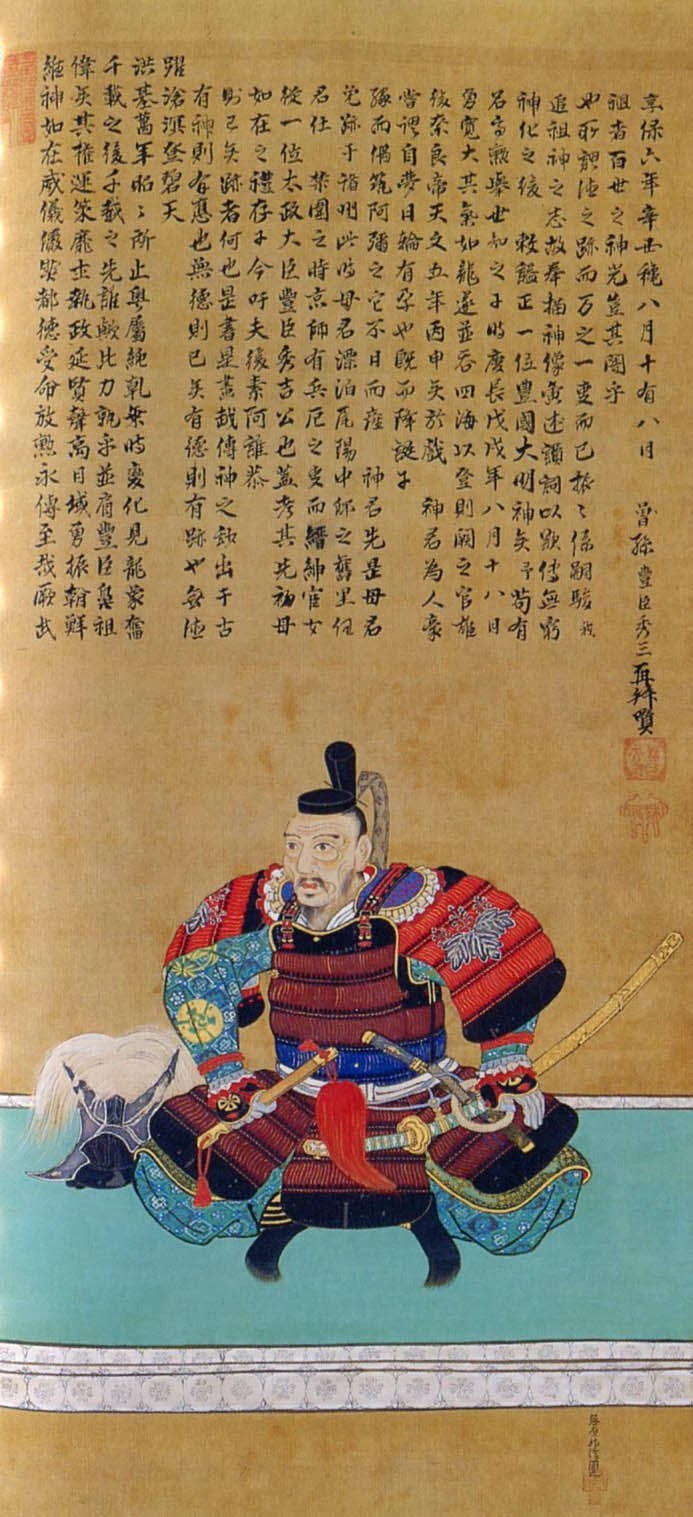 維神如在威儀儼然都德受命放勲永傳至哉厥武
偉矣其権運策靡虫執政延賢聲高日域勇振朝鮮
千載之後千載之先誰較比力孰乎並肩豊臣鼻祖
洪基萬年昭々所止奥属純乾與時變化見龍蒙奮
躍滄溟登碧天
有神則有應也無德則已矣有德則有跡也無德
則已矣跡者何也是書是畫哉傳神之敏出于古
如在之禮存于今吁夫後素何誰恭
從一位太政大臣豊臣秀吉公也蓋考其先初母
君仕 禁闈之時京師有兵厄之事而縉紳官女
晃跡于諸州此時母君漂泊尾陽中郷之舊里任
縁而偶筑阿彌之宅不日而産 神君先是母君
嘗謂自夢日輪有孕也既而降誕于
後奈良帝天文五年丙申矣於戯 神君為人豪
勇寛大其氣如龍遂並呑四海以登則闕之官雄
名高勲擧世知之于時慶長戊戌年八月十八日
神化之後 敕謚正一位豊國大明神矣予苟有
追祖神之志故奉拍神像寅述讃詞以欲傳無窮
也所謂德之跡而万之一事而已振々係嗣駿我
祖者百世之神光豈其闇乎
享保六年辛丑穐八月十有八日 曾孫豊臣秀三再拜賛
藤原